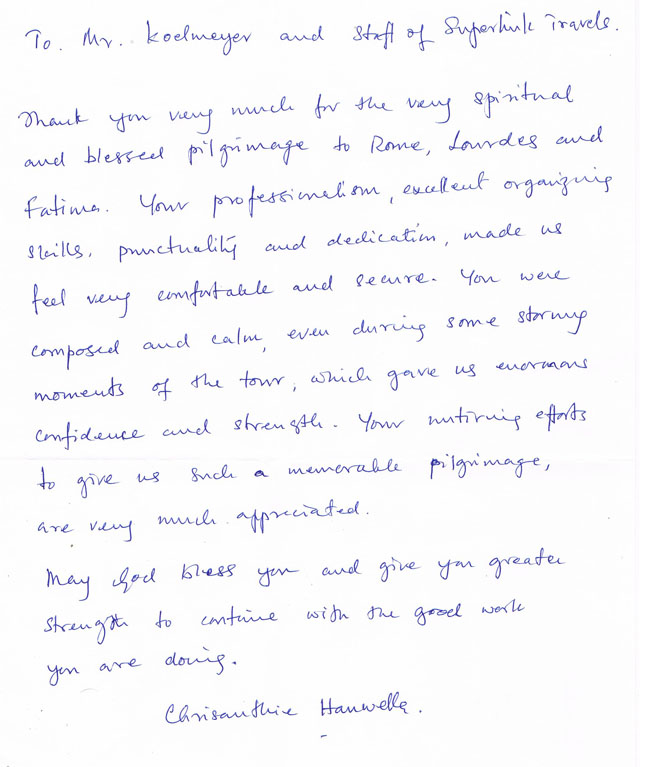 To. Mr. Koelmeyer and Staff of Superlink Travels.
Thank you very much for the very spiritual
and blessed pilgrimage to Rome, Lourdes and
Fatima. Your professionalism, excellent organizing
skills, punctuality and dedication, made us
feel very comfortable and secure. You were
composed and calm, even during some stormy
moments of the tour, which gave us enormous
confidence and strength. Your untiring efforts
to give us such a memorable pilgrimage,
are very much appreciated.
May God bless you and give you greater
strength to continue with the good work
you are doing.
Chrisanthie Hanwella.